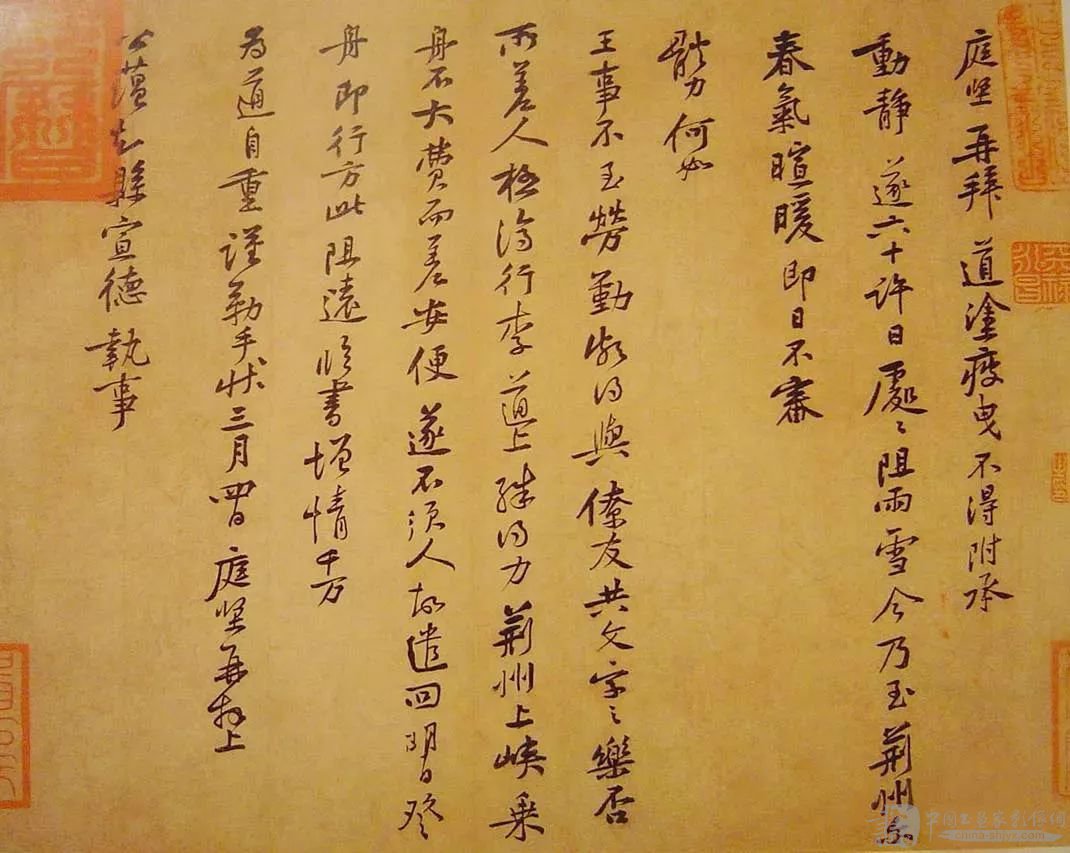 庭堅再拜道塗疲曳不得附承
動靜遂六十許日處〻阻雨雪今乃至荊州尔
春氣暄暖即日不審
體力何如
王事不至勞勤頗得與僚友共文字之樂否
所差人極濟行李道上殊得力荊州上峽乘
舟不大費而差安便遂不須人故遣回明日發
舟即行方此阻遠臨書增情千万
為道自重謹勒手狀三月四日庭堅再拜上
公蘊知縣宣德執事
china-shiyx.com